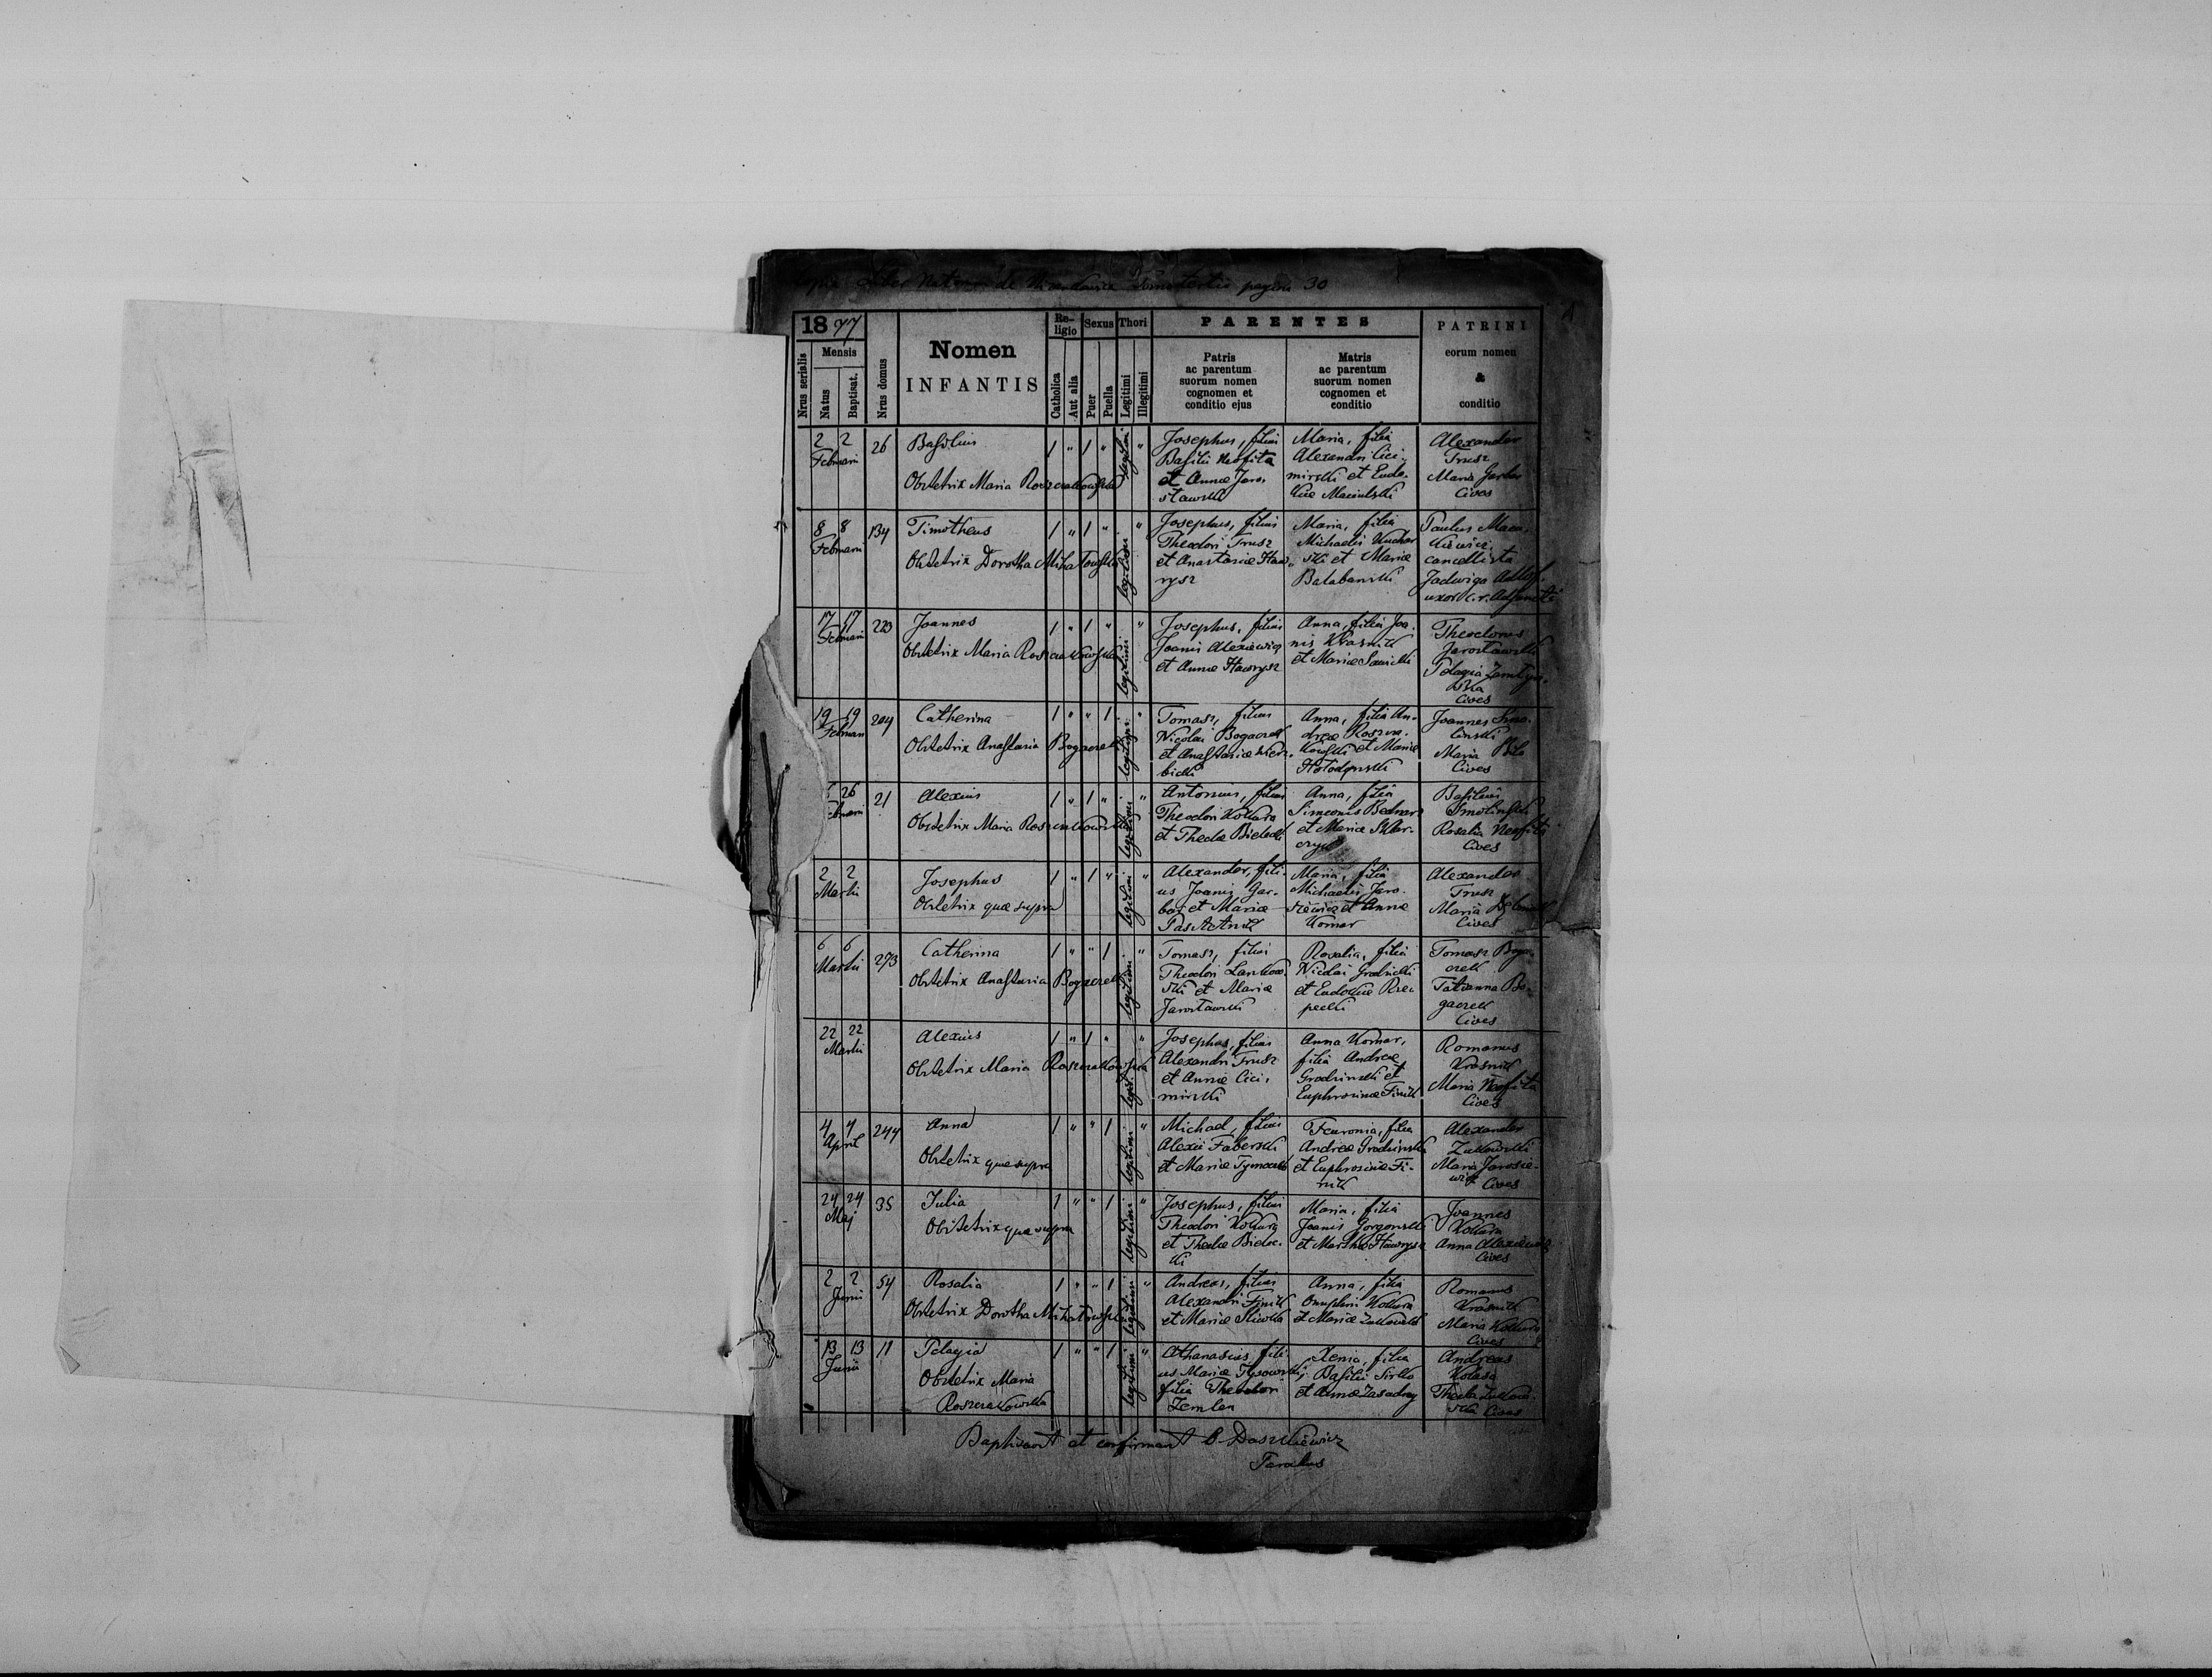 Copia Liber Natorum de
pagina 30
1
1877
Nrus serialis
Mensis
Natus
Baptisat.
Nrus domus
Nomen
INFANTIS
Re-
ligio
Catholica
Aut alia
Sexus
Puer
Puella
Thori
Legitimi
Illegitimi
PARENTES
Patris
ac parentum
suorum nomen
cognomen et
conditio ejus
Matris
ac parentum
suorum nomen
cognomen et
conditio
PATRINI
eorum nomen
&
conditio
2 2
Februarii
26
Basilius
Obstetrix Maria Roszczakowska
1 " 1 "
legitimi
"
Josephus, filius
Basilii Neofita
et Annæ Jaro-
sławski
Maria, filia
Alexandri Cici-
mirski et Eudo-
kiæ Maciulski
Alexander
Trusz
Maria Garbar
Cives
8 8
Februarii
134
Timotheus
Obstetrix Dorothea
1 " 1 "
legitimi
"
Josephus, filius
Theodori Trusz
et Anastasiæ Haw-
rysz
Maria, filia
Michaelis Kuchar
ski et Mariæ
Balabanski
Paulus
cancellista
Jadwiga
uxor c. r. Adjuncti
17 17
Februarii
223
Joannes
Obstetrix Maria Roszczakowska
1 " 1 "
legitimi
"
Josephus, filius
Joanis Alexiewicz
et Annæ Hawrysz
Anna, filia Joa-
nis Krasnik
et Mariæ Sanicki
Theodorus
Jarosławski
Pelagia
ska
Cives
19 19
Februarii
204
Catherina
Obstetrix Anastasia Bogaczek
1 " " 1
legitimi
"
Tomasz, filius
Nicolai Bogaczek
et Anastasiæ Wierz-
bicki
Anna, filia An-
dreæ Roszcza-
kowski et Mariæ
Hołodynski
Joannes Smo-
linski
Maria
Cives
26
Februarii
21
Alexius
Obstetrix Maria Roszczakowska
1 " 1 "
legitimi
"
Antonius, filius
Theodori Kokura
et Theclæ Bielecki
Anna, filia
Simeonis Bednarz
et Mariæ
Basilius
Smolinski
Rosalia Neofita
Cives
2 2
Martii
Josephus
Obstetrix quæ supra
1 " 1 "
legitimi
"
Alexander, fili-
us Joanis Gar-
barz et Mariæ
Maria, filia
Michaelis Jaro-
siewicz et Annæ
Komar
Alexander
Trusz
Maria
Cives
6 6
Martii
273
Catherina
Obstetrix Anastasia Bogaczek
1 " " 1
legitimi
"
Tomasz, filius
Theodori Lankow-
ski et Mariæ
Jarosławski
Rosalia, filia
Nicolai Grodzicki
et Eudokiæ Rze-
pecki
Tomasz Boga-
czek
Tatianna Bo-
gaczek
Cives
22 22
Martii
Alexius
Obstetrix Maria Roszczakowska
1 " 1 "
legit.
"
Josephus, filius
Alexandri Trusz
et Annæ Cici-
mirski
Anna Komar,
filia Andreæ
Grodzinski et
Euphrosinæ Finik
Romanus
Krasnik
Maria Neofita
Cives
4 4
April
244
Anna
Obstetrix quæ supra
1 " " 1
legitimi
"
Michael, filius
Alexii Faberski
et Mariæ
Feuronia, filia
Andreæ Grodzinski
et Euphrosinæ Fi-
nik
Alexander
Zukowski
Maria Jarosie-
wicz Cives
24 24
Maj
35
Julia
Obstetrix quæ supra
1 " " 1
legitimi
"
Josephus, filius
Theodori Kokura
et Theclæ Bielec-
ki
Maria, filia
Joanis Gorgonski
et Marthæ Hawrysz
Joannes
Kokura
Anna Alexiewicz
Cives
2 2
Junii
54
Rosalia
Obstetrix Dorothea
1 " " 1
legitimi
"
Andreas, filius
Alexandri Finik
et Mariæ Sliwka
Anna, filia
Onuphrii Kokura
et Mariæ Zukowski
Romanus
Krasnik
Maria Kokura
Cives
13 13
Junii
11
Pelagia
Obstetrix Maria
Roszczakowska
1 " " 1
legitimi
"
Athanasius fili-
us Mariæ Tysowski,
filia Theodori
Zemlan
Xenia, filia
Basilii Sirko
et Annæ Zasadny
Andreas
Kolasa
Thecla Zukow-
ska Cives
Baptisavit et confirmavit B. Daszkiewicz
Parochus